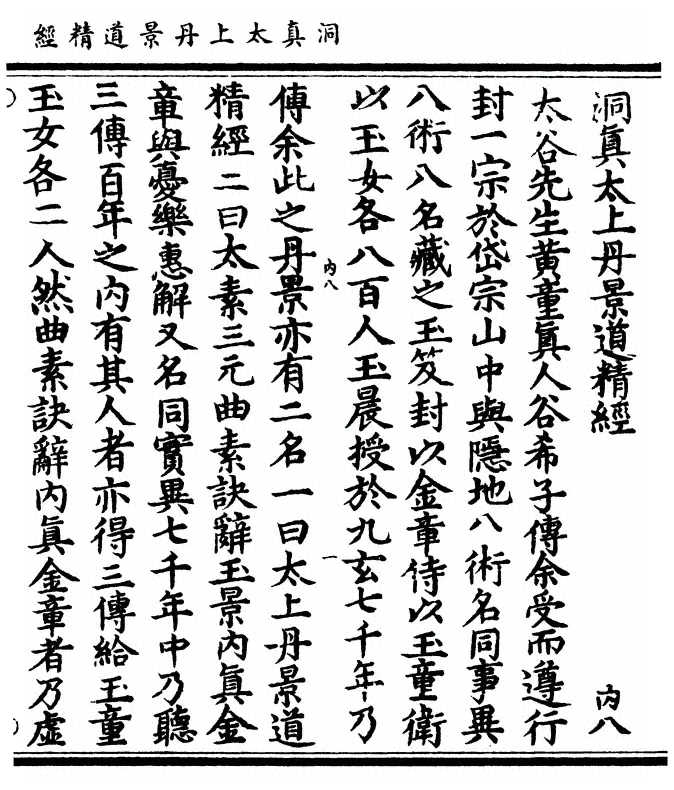 洞真太上丹景道精經
洞眞太上丹景道精經 内八
太谷先生黃童眞人谷希子傳余受而遵行
封一宗於岱宗山中與隱地八術名同事異
八術八名藏之玉笈封以金章侍以玉童衛
以玉女各八百人玉晨授於九玄七千年乃
内八 一
傳余此之丹景亦有二名一曰太上丹景道
精經二曰太素三元曲素訣辭玉景内眞金
章與憂樂惠解又名同實異七千年中乃聽
三傳百年之内有其人者亦得三傳給玉童
玉女各二人然曲素訣辭内眞金章者乃虛